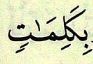 بِكَلِمَـٰتٍ